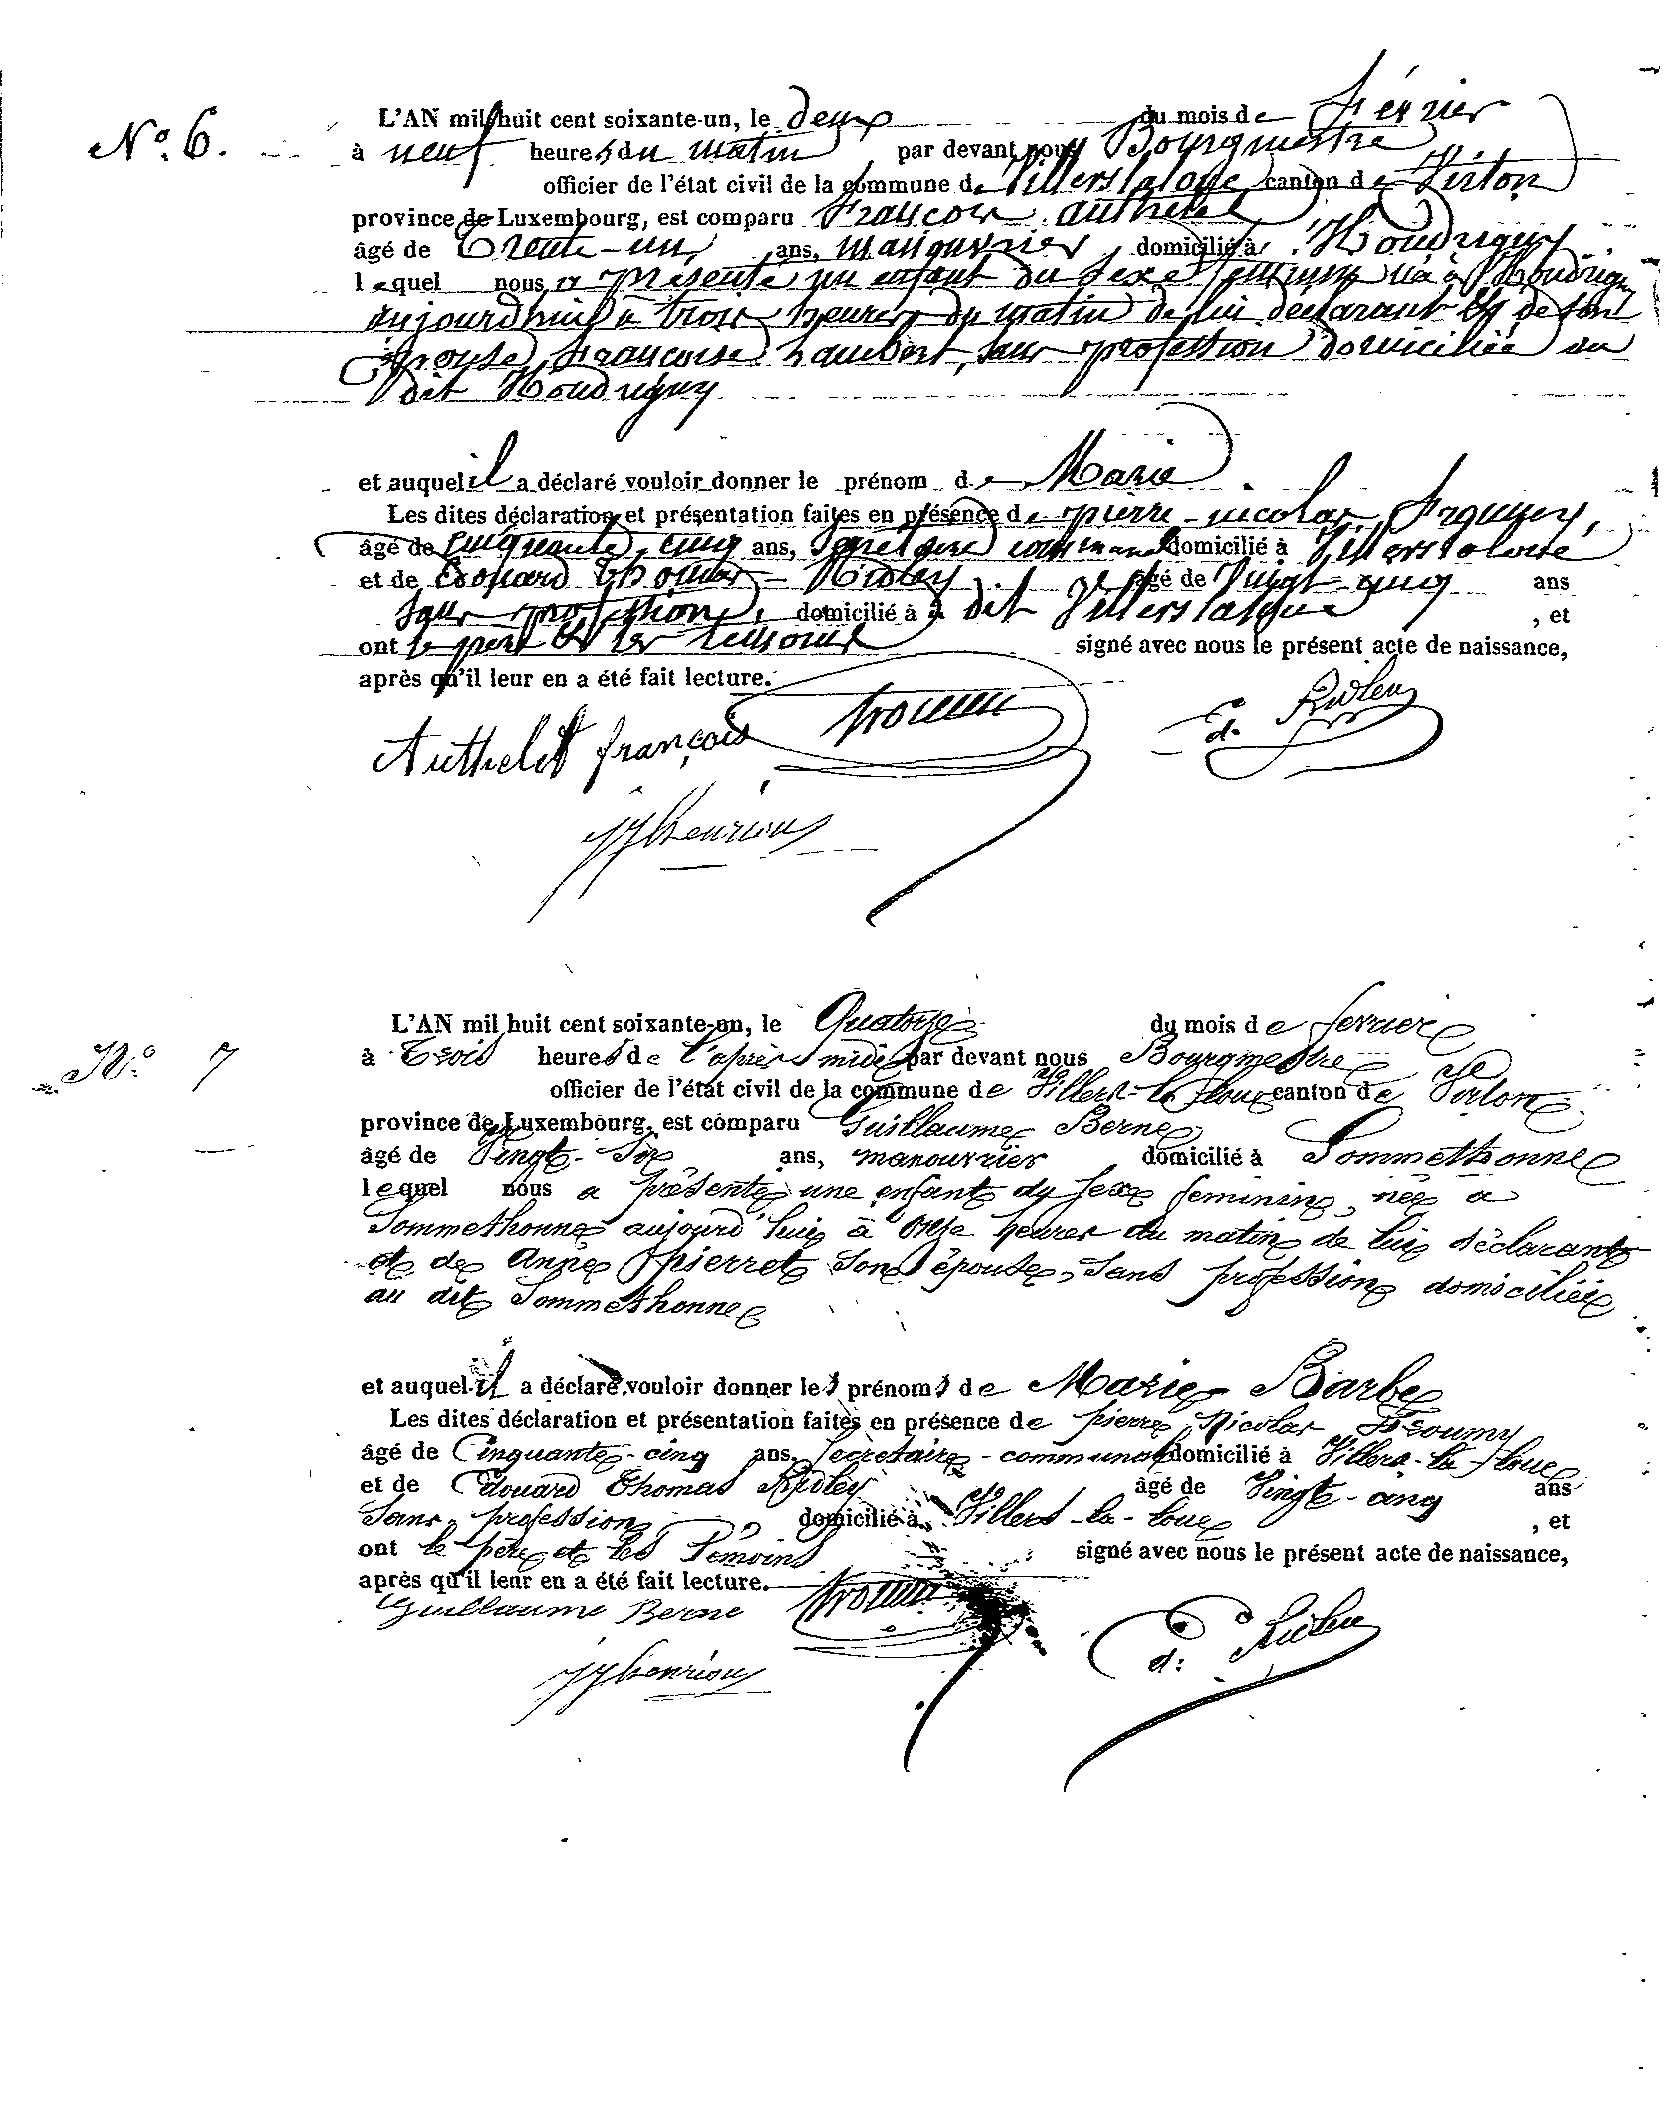 N.º 6.
L'AN mil huit cent soixante-un, le deux du mois de février
à neuf heures du matin par devant nous Bourgmestre
officier de l'état civil de la commune de Villers la loue canton de Virton
province de Luxembourg, est comparu François Authelet
âgé de Trente-un ans, manouvrier domicilié à Houdrigny
lequel nous a présenté un enfant du sexe féminin né à Houdrigny
aujourd'hui à trois heures du matin de lui déclarant Et de son
Epouse, Françoise Lambert, sans profession domiciliée au
dit Houdrigny
et auquel il a déclaré vouloir donner le prénom de Marie
Les dites déclaration et présentation faites en présence de pierre-nicolas
âgé de Cinquante cinq ans, secrétaire communal domicilié à Villers la loue
et de Edouard Thomas-Ridley âgé de Vingt-cinq ans
sans profession, domicilié à dit Villers la loue, et
ont le père Et les temoins signé avec nous le présent acte de naissance,
après qu'il leur en a été fait lecture.
Authelet françois Ed. Ridley
N.º 7
L'AN mil huit cent soixante-un, le Quatorze du mois de fevrier
à Trois heures de l'après midi par devant nous Bourgmestre
officier de l'état civil de la commune de Villers-la-Loue canton de Virton
province de Luxembourg, est comparu Guillaume Berne
âgé de Vingt-Six ans, manouvrier domicilié à Sommethonne
lequel nous a présenté une enfant du sexe feminin, née a
Sommethonne aujourd'hui à onze heures du matin de lui déclarant
et de Anne pierret Son épouse, Sans profession domiciliée
au dit Sommethonne
et auquel il a déclaré vouloir donner les prénoms de Marie Barbe
Les dites déclaration et présentation faites en présence de pierre Nicolas
âgé de Cinquante-cinq ans, Secrétaire-communal domicilié à Villers-la-Loue
et de Edouard Thomas Ridley âgé de Vingt-cinq ans
Sans profession domicilié à Villers-la-Loue, et
ont le père et les Témoins signé avec nous le présent acte de naissance,
après qu'il leur en a été fait lecture.
Guillaume Berne
Ed. Ridley